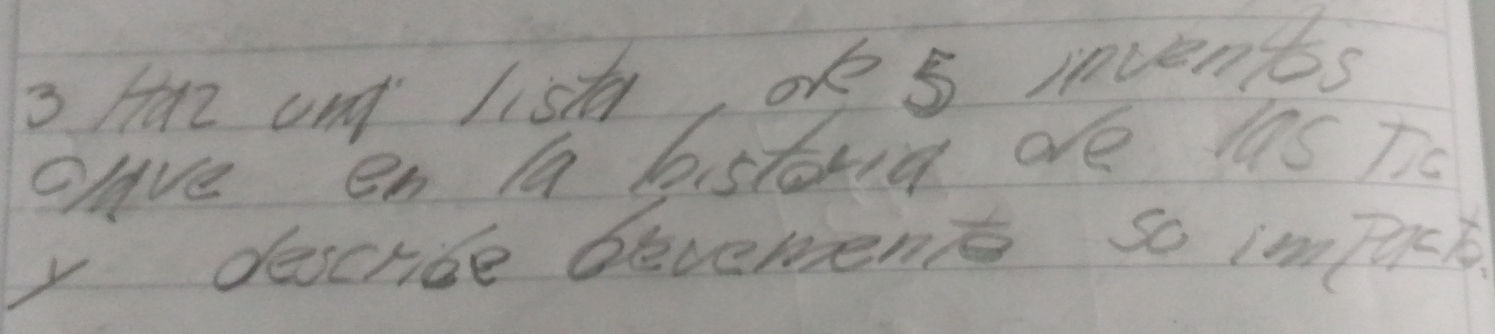 3 Haz una lista, de 5 inventos
clave en la historia de las Tic
y describe brevemente so impacto.